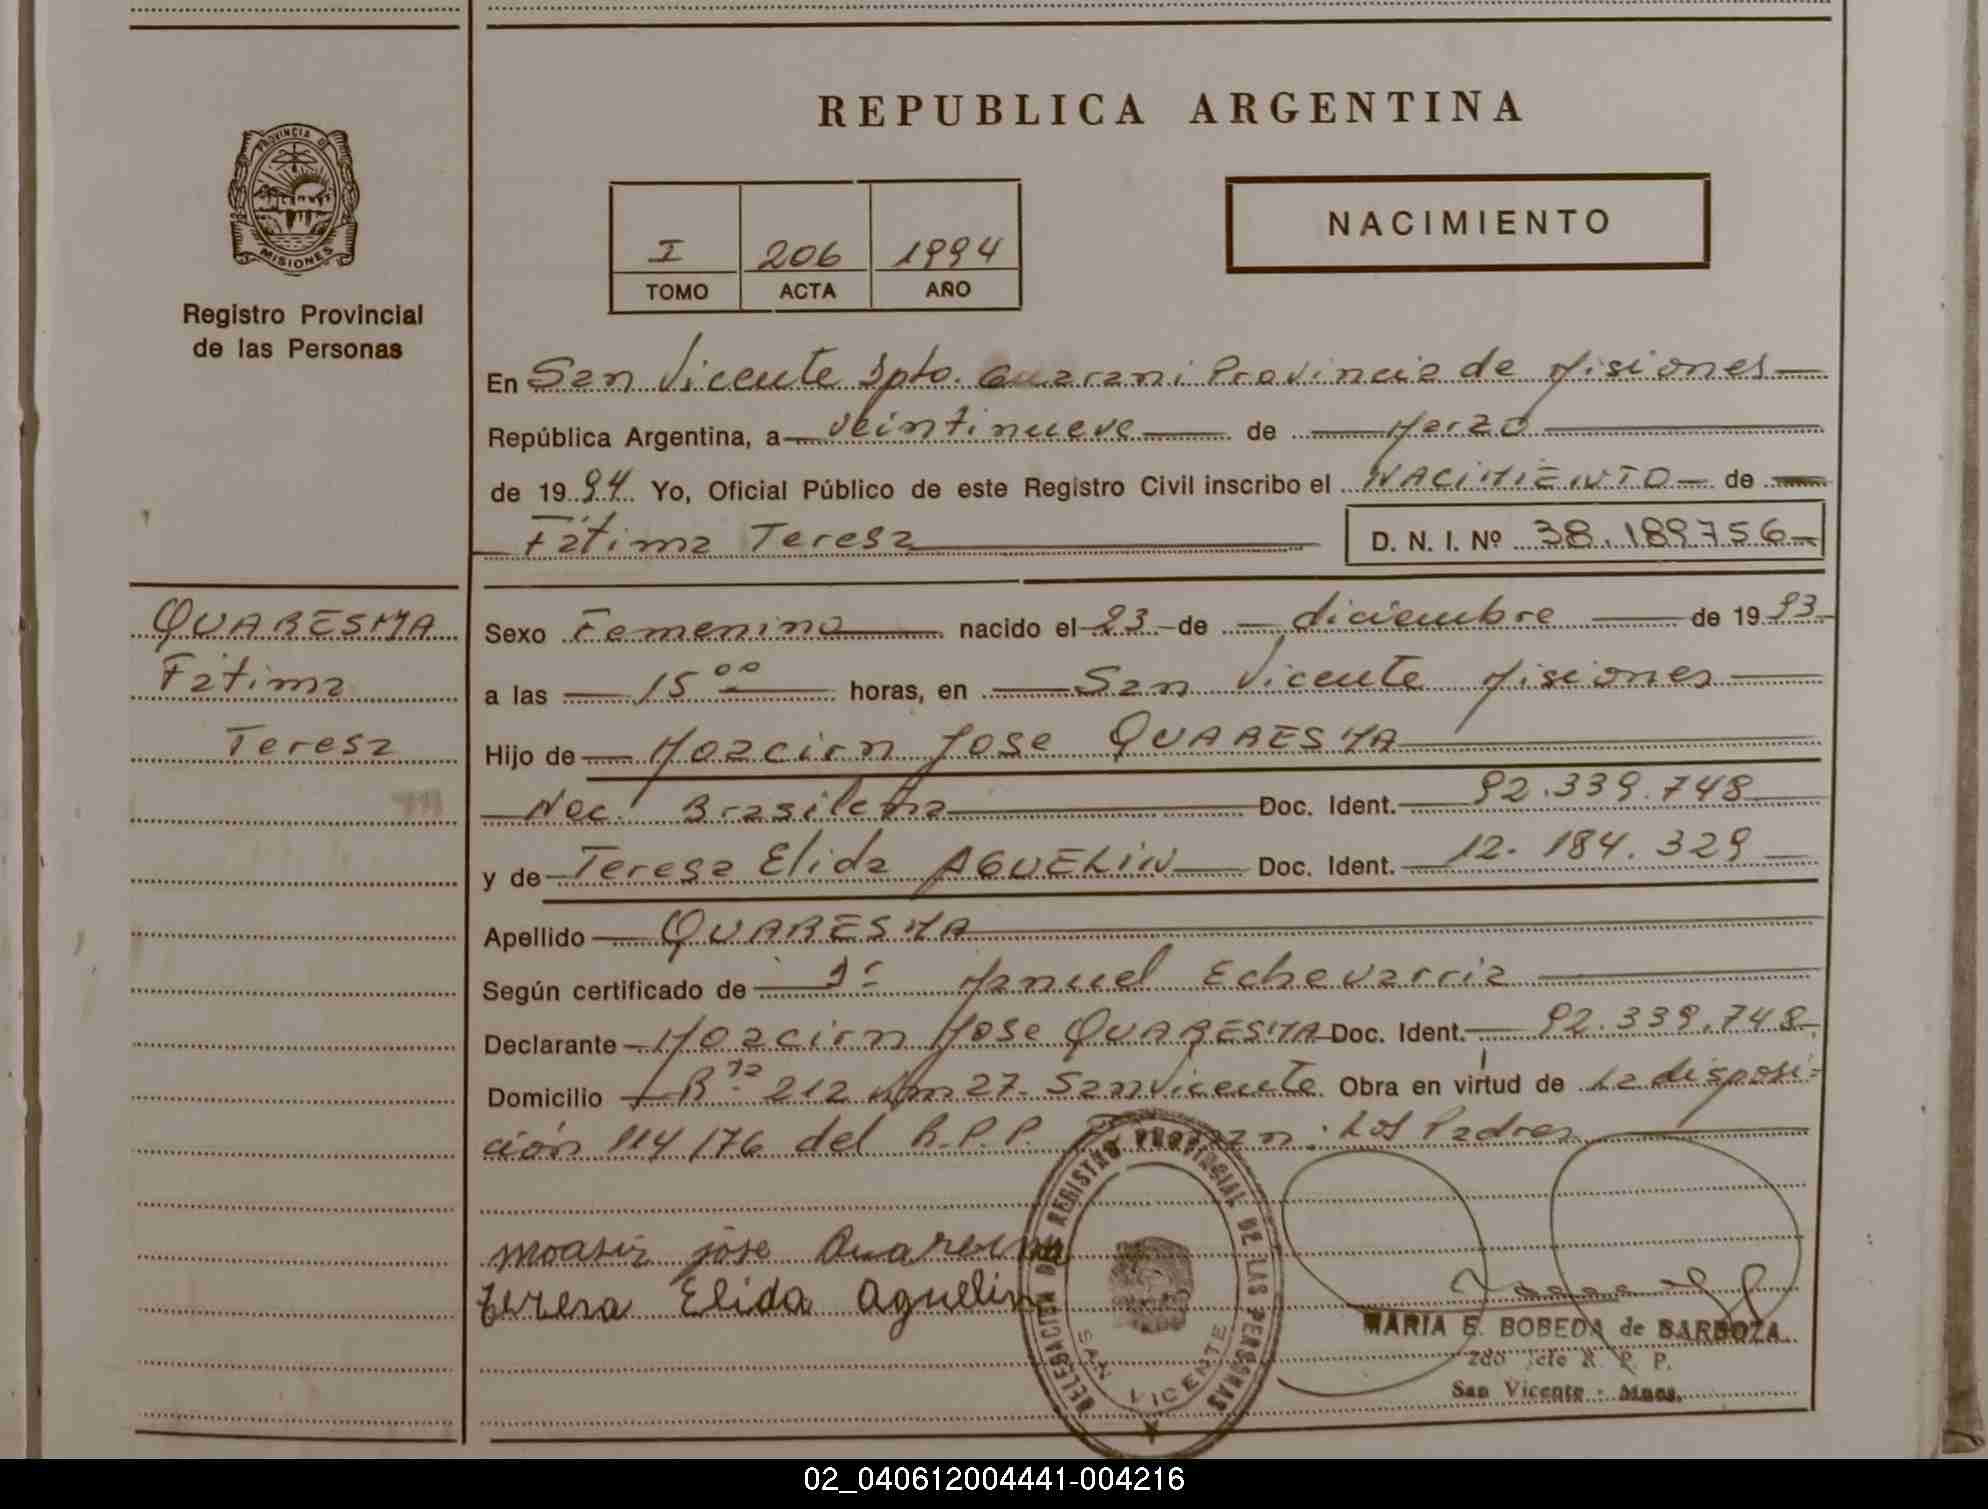 REPUBLICA ARGENTINA
PROVINCIA DE
MISIONES
Registro Provincial
de las Personas
NACIMIENTO
I 206 1994
TOMO ACTA AÑO
En San Vicente Dpto. Guarani Provincia de Misiones
República Argentina, a veintinueve de Marzo
de 1994 Yo, Oficial Público de este Registro Civil inscribo el NACIMIENTO de
Fátima Teresa D. N. I. Nº 38.189756
QUARESMA
Fátima
Teresa
Sexo Femenino nacido el 23 de diciembre de 1993
a las 15 00 horas, en San Vicente Misiones
Hijo de Moacirn Jose QUARESMA
Nac. Brasileña Doc. Ident. 92.339.748
y de Teresa Elida AGUELIN Doc. Ident. 12.184.329
Apellido QUARESMA
Según certificado de Dr Manuel Echevarria
Declarante Moacirn Jose QUARESMA Doc. Ident. 92.339.748
Domicilio Rta 212 Km 27. San Vicente. Obra en virtud de La disposi-
ción 114/76 del R.P.P. Los Padres
jose Quaresma
teresa Elida Aguelin
DELEGACION DEL REGISTRO PROVINCIAL DE LAS PERSONAS
SAN VICENTE
MARIA E. BOBEDA de BARBOZA
2do Jefe R. P. P.
San Vicente - Mnes.
02_040612004441-004216